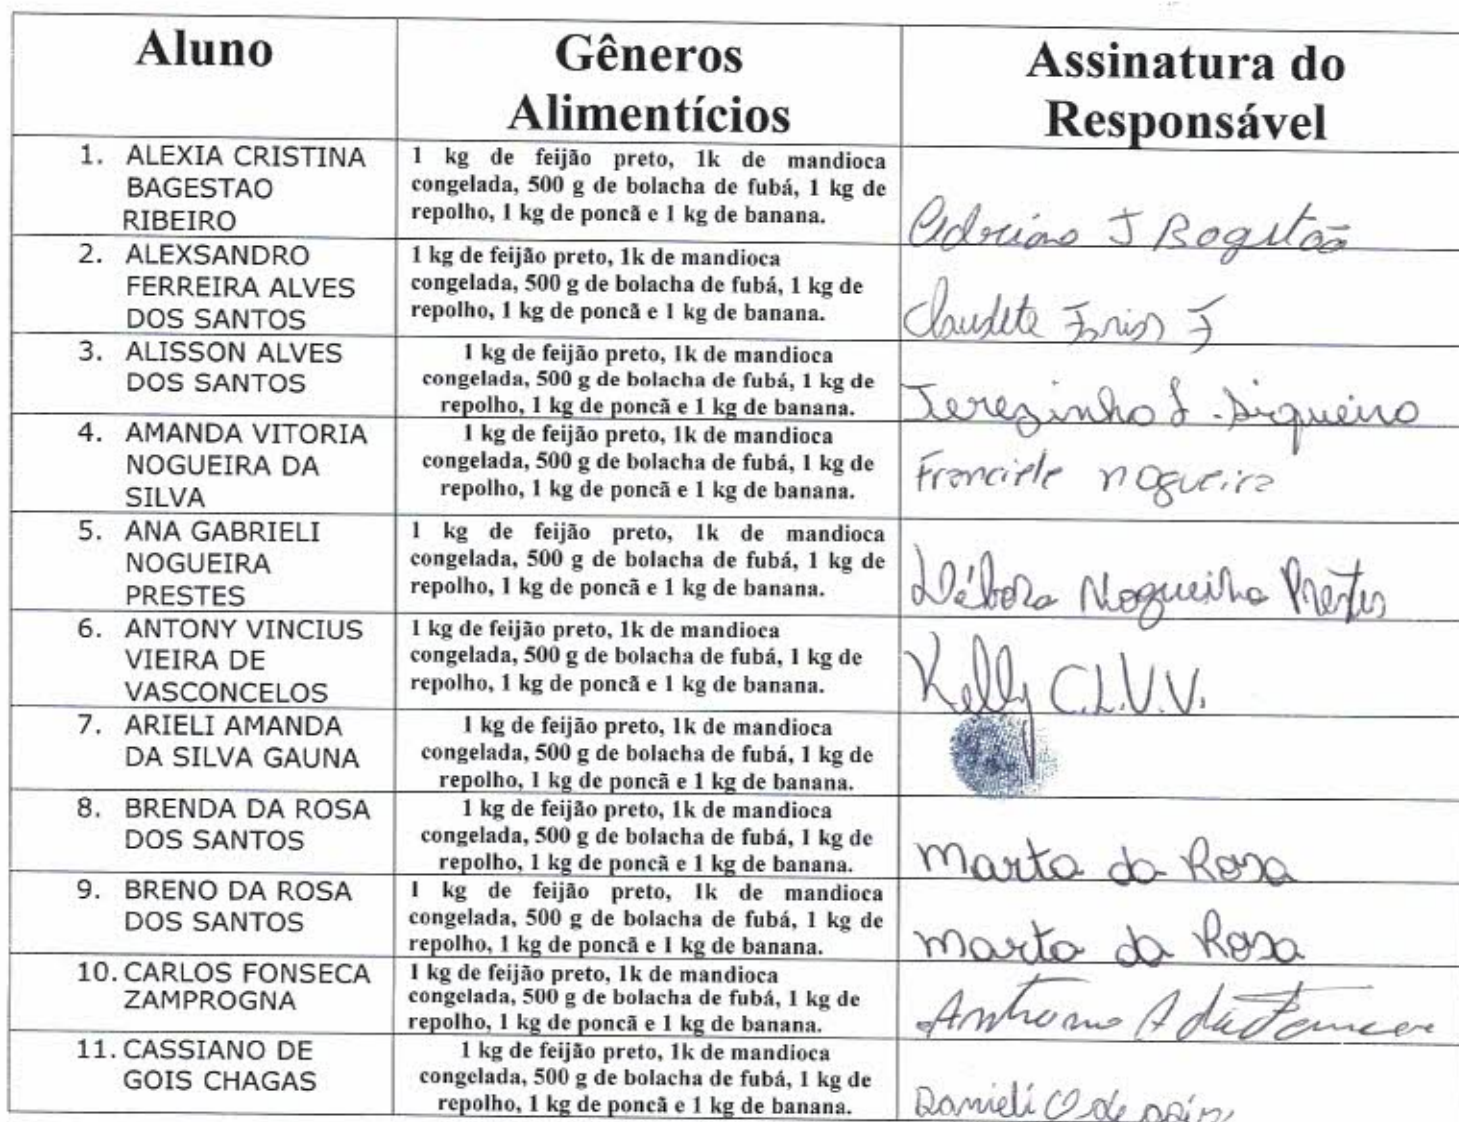 Aluno
Gêneros
Alimentícios
Assinatura do
Responsável
1. ALEXIA CRISTINA
BAGESTAO
RIBEIRO
1 kg de feijão preto, 1k de mandioca
congelada, 500 g de bolacha de fubá, 1 kg de
repolho, 1 kg de poncã e 1 kg de banana.
2. ALEXSANDRO
FERREIRA ALVES
DOS SANTOS
1 kg de feijão preto, 1k de mandioca
congelada, 500 g de bolacha de fubá, 1 kg de
repolho, 1 kg de poncã e 1 kg de banana.
Claudete
3. ALISSON ALVES
DOS SANTOS
1 kg de feijão preto, 1k de mandioca
congelada, 500 g de bolacha de fubá, 1 kg de
repolho, 1 kg de poncã e 1 kg de banana.
4. AMANDA VITORIA
NOGUEIRA DA
SILVA
1 kg de feijão preto, 1k de mandioca
congelada, 500 g de bolacha de fubá, 1 kg de
repolho, 1 kg de poncã e 1 kg de banana.
Franciele nogueira
5. ANA GABRIELI
NOGUEIRA
PRESTES
1 kg de feijão preto, 1k de mandioca
congelada, 500 g de bolacha de fubá, 1 kg de
repolho, 1 kg de poncã e 1 kg de banana.
Débora Nogueira Prestes
6. ANTONY VINCIUS
VIEIRA DE
VASCONCELOS
1 kg de feijão preto, 1k de mandioca
congelada, 500 g de bolacha de fubá, 1 kg de
repolho, 1 kg de poncã e 1 kg de banana.
Kelly C.L.V.V.
7. ARIELI AMANDA
DA SILVA GAUNA
1 kg de feijão preto, 1k de mandioca
congelada, 500 g de bolacha de fubá, 1 kg de
repolho, 1 kg de poncã e 1 kg de banana.
8. BRENDA DA ROSA
DOS SANTOS
1 kg de feijão preto, 1k de mandioca
congelada, 500 g de bolacha de fubá, 1 kg de
repolho, 1 kg de poncã e 1 kg de banana.
Marta da Rosa
9. BRENO DA ROSA
DOS SANTOS
1 kg de feijão preto, 1k de mandioca
congelada, 500 g de bolacha de fubá, 1 kg de
repolho, 1 kg de poncã e 1 kg de banana.
Marta da Rosa
10. CARLOS FONSECA
ZAMPROGNA
1 kg de feijão preto, 1k de mandioca
congelada, 500 g de bolacha de fubá, 1 kg de
repolho, 1 kg de poncã e 1 kg de banana.
11. CASSIANO DE
GOIS CHAGAS
1 kg de feijão preto, 1k de mandioca
congelada, 500 g de bolacha de fubá, 1 kg de
repolho, 1 kg de poncã e 1 kg de banana.
Danieli